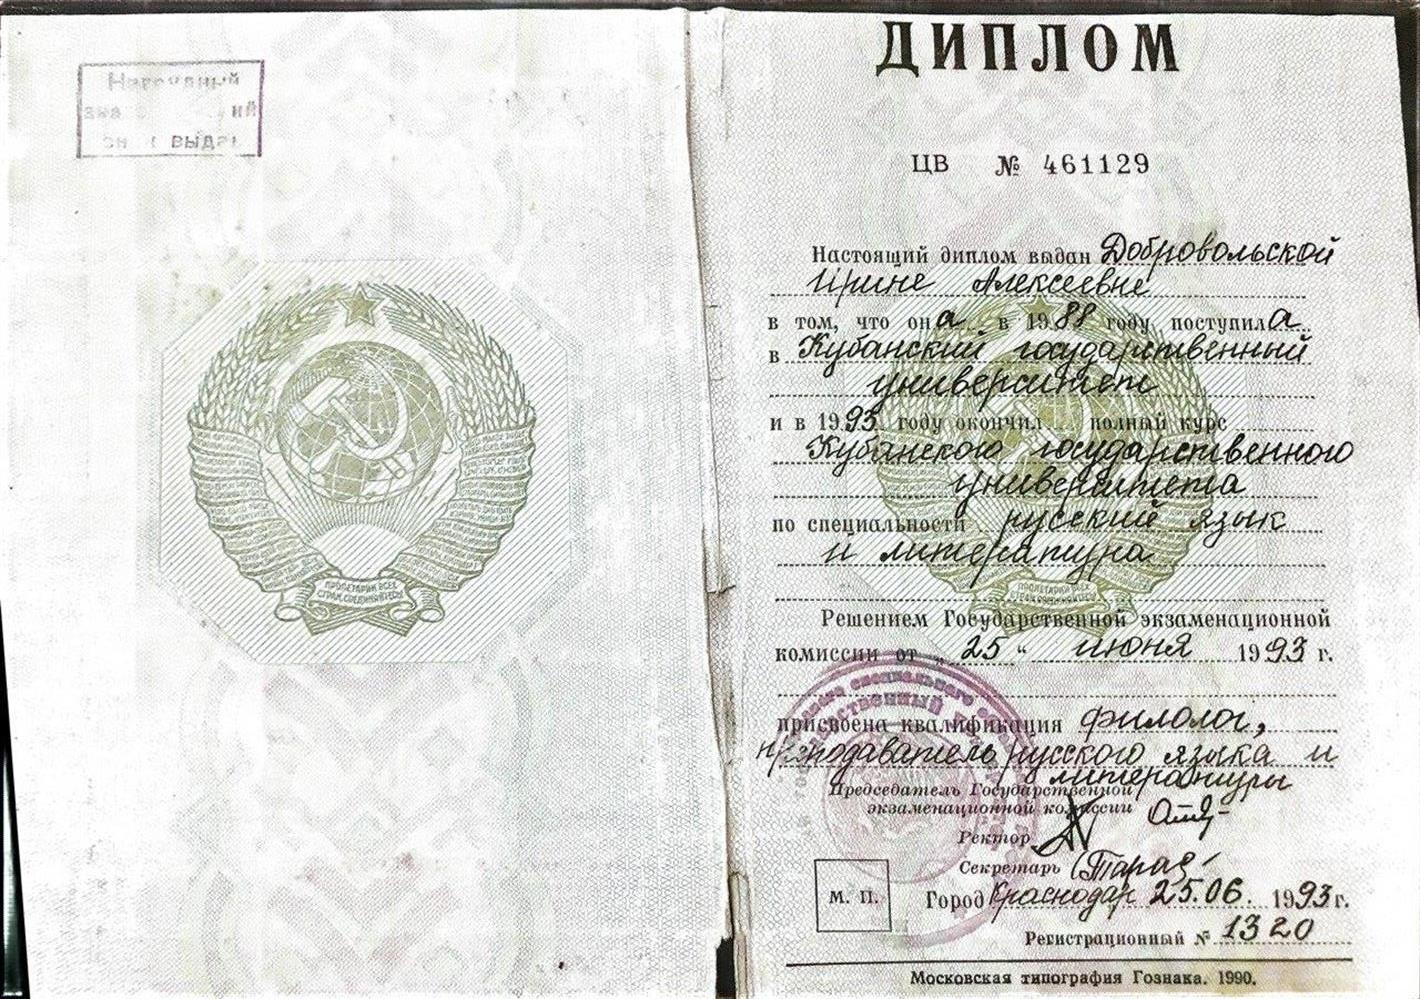 Нагрудный
знак
выдан
ПРОЛЕТАРИИ ВСЕХ
СТРАН, СОЕДИНЯЙТЕСЬ!
ДИПЛОМ
ЦВ № 461129
Настоящий диплом выдан Добровольской
Ирине Алексеевне
в том, что она в 1988 году поступила
в Кубанский государственный
университет
и в 1993 году окончил полный курс
Кубанского государственного
университета
по специальности русский язык
и литература
Решением Государственной экзаменационной
комиссии от „25“ июня 1993 г.
присвоена квалификация филолог,
преподаватель русского языка и
литературы
Председатель Государственной
экзаменационной комиссии
Ректор
Секретарь
М. П.
Город Краснодар 25.06. 1993 г.
Регистрационный № 1320
Московская типография Гознака. 1990.